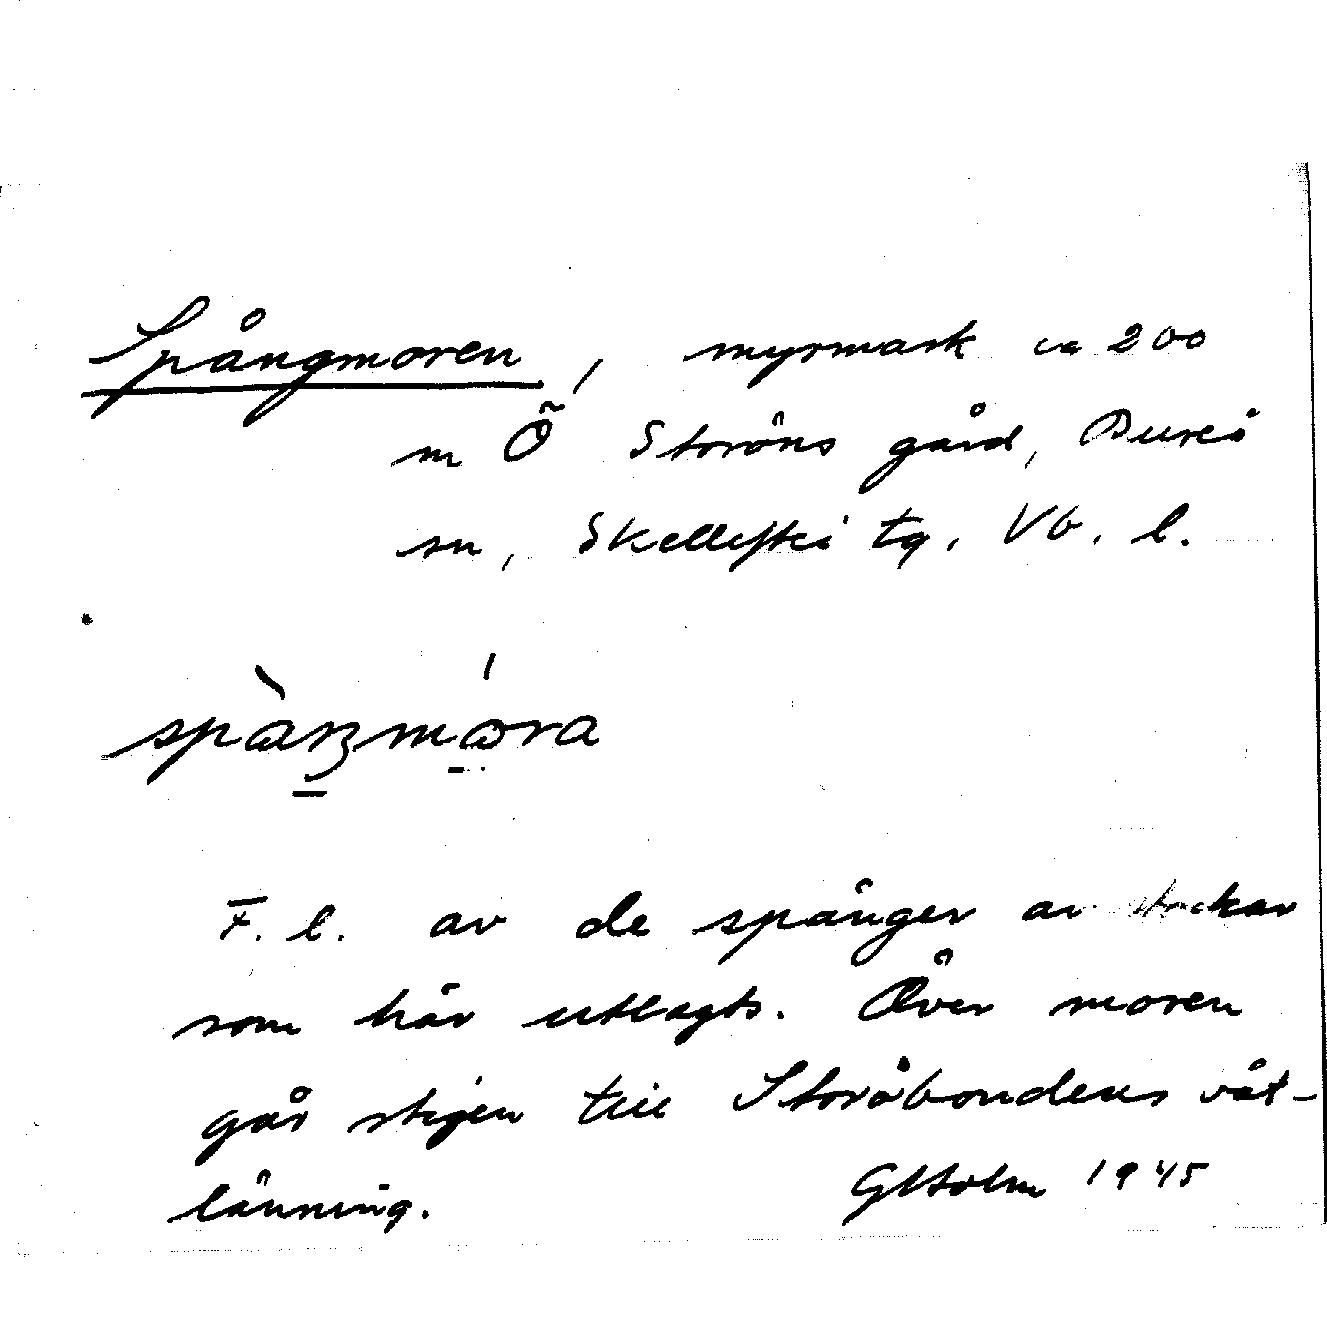 Spångmoren, myrmark ca 200
m Ö Storöns gård, Bureå
sn, Skellefteå tg. Vb. l.
F. l. av de spänger av stockar
som här utlagts. Över moren
går stigen till Storåbondens våt-
länning. GHolm 1945